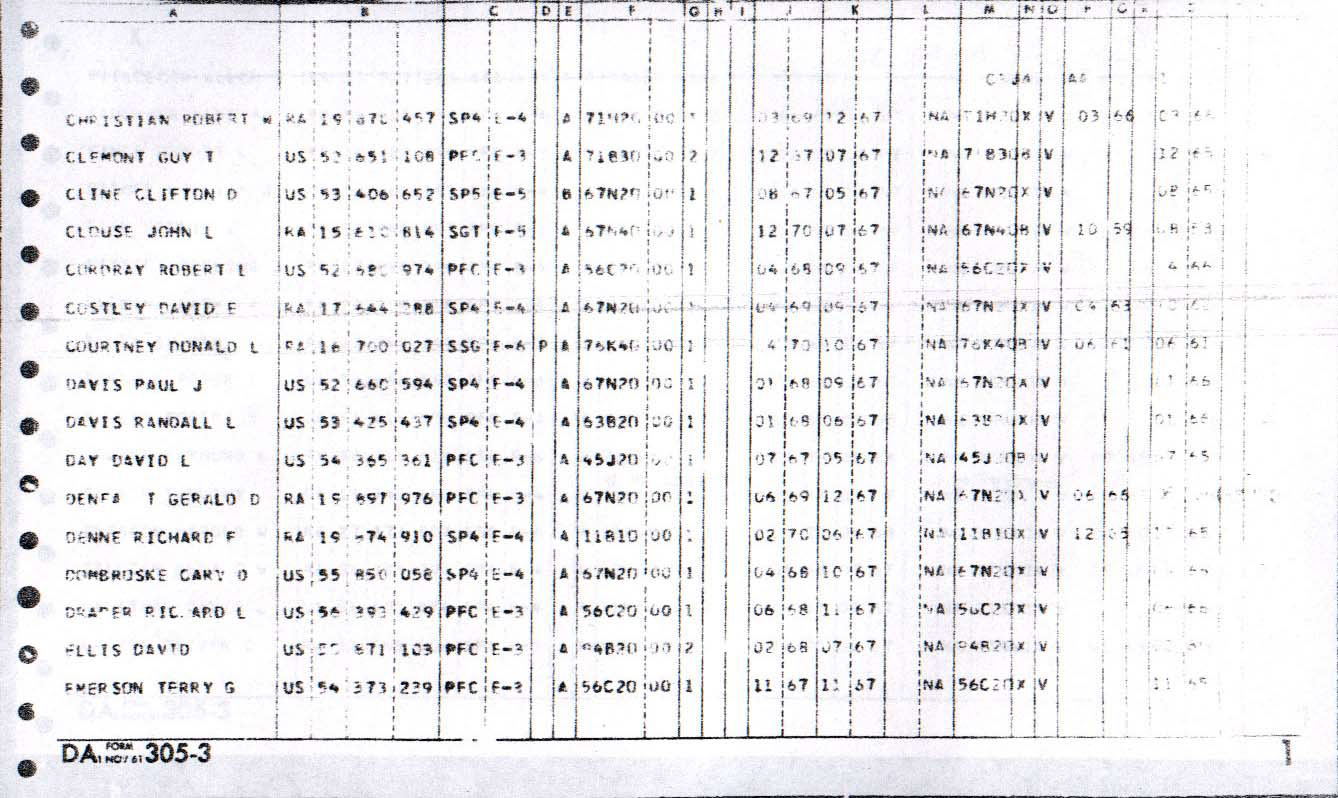 A B C D E F G H I J K L M N O
AA
CHRISTIAN ROBERT W RA 19 670 457 SP4 E-4 A 71H20 00 1 03 69 12 67 NA 71H20X V 03 66 03 66
CLEMONT GUY T US 52 651 108 PFC E-3 A 71B30 00 2 12 67 07 67 NA 71B30B V 12 65
CLINE CLIFTON D US 53 406 652 SP5 E-5 B 67N20 00 1 08 67 05 67 NA 67N20X V 08 65
CLOUSE JOHN L RA 15 610 814 SGT E-5 A 67N40 00 1 12 70 07 67 NA 67N40B V 10 59 08 53
CORDRAY ROBERT L US 52 680 974 PFC E-3 A 56C20 00 1 04 68 09 67 NA 56C20X V 4 66
COSTLEY DAVID E RA 17 644 288 SP4 E-4 A 67N20 00 1 04 69 09 67 NA 67N20X V 04 63
COURTNEY DONALD L RA 16 700 027 SSG E-6 P A 76K40 00 1 4 70 10 67 NA 76K40B V 06 61 06 61
DAVIS PAUL J US 52 660 594 SP4 E-4 A 67N20 00 1 01 68 09 67 NA 67N20X V 01 66
DAVIS RANDALL L US 53 425 437 SP4 E-4 A 63B20 00 1 01 68 06 67 NA 63B20X V 01 66
DAY DAVID L US 54 365 361 PFC E-3 A 45J20 00 1 07 67 05 67 NA 45J20B V 7 65
GERALD D RA 19 697 976 PFC E-3 A 67N20 00 1 06 69 12 67 NA 67N20X V 06 66
DENNE RICHARD F RA 19 674 910 SP4 E-4 A 11B10 00 1 02 70 06 67 NA 11B10X V 12 65 65
DOMBROSKE GARY D US 55 850 058 SP4 E-4 A 67N20 00 1 04 68 10 67 NA 67N20X V 66
DRAPER RIC ARD L US 56 393 429 PFC E-3 A 56C20 00 1 06 68 11 67 NA 56C20X V 66
ELLIS DAVID US 671 103 PFC E-3 A 94B20 00 2 02 68 07 67 NA 94B20X V
EMERSON TERRY G US 54 373 239 PFC E-3 A 56C20 00 1 11 67 11 67 NA 56C20X V 11 65
DA FORM 1 NOV 61 305-3
1